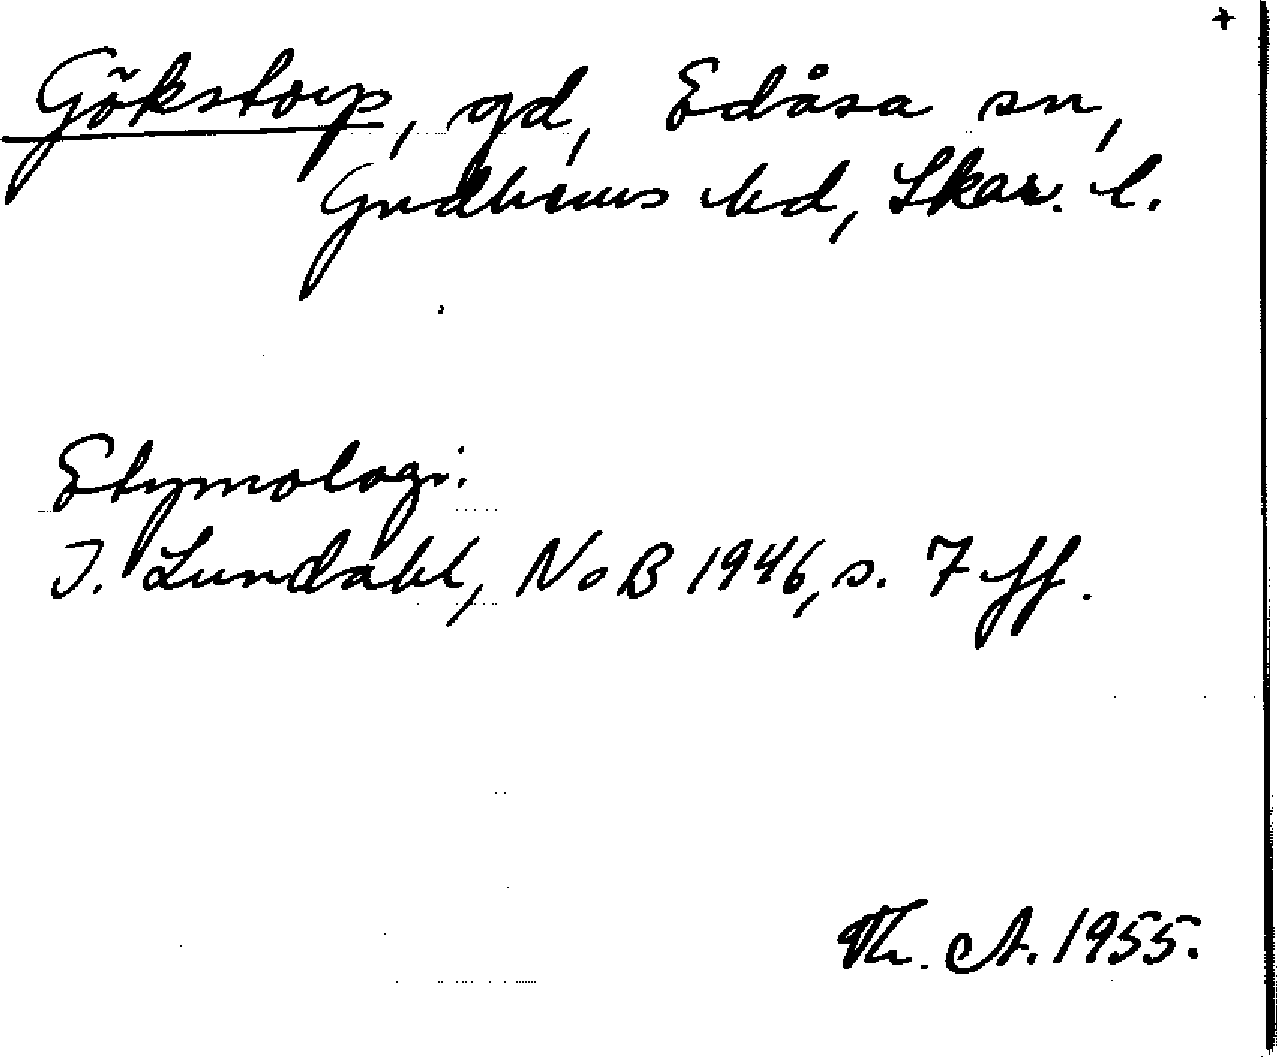 +
Gökstorp, gd, Edåsa sn,
Gudhems hd, Skar. l.
Etymologi:
I. Lundahl, NoB 1946, s. 7 ff.
Th. A. 1955.